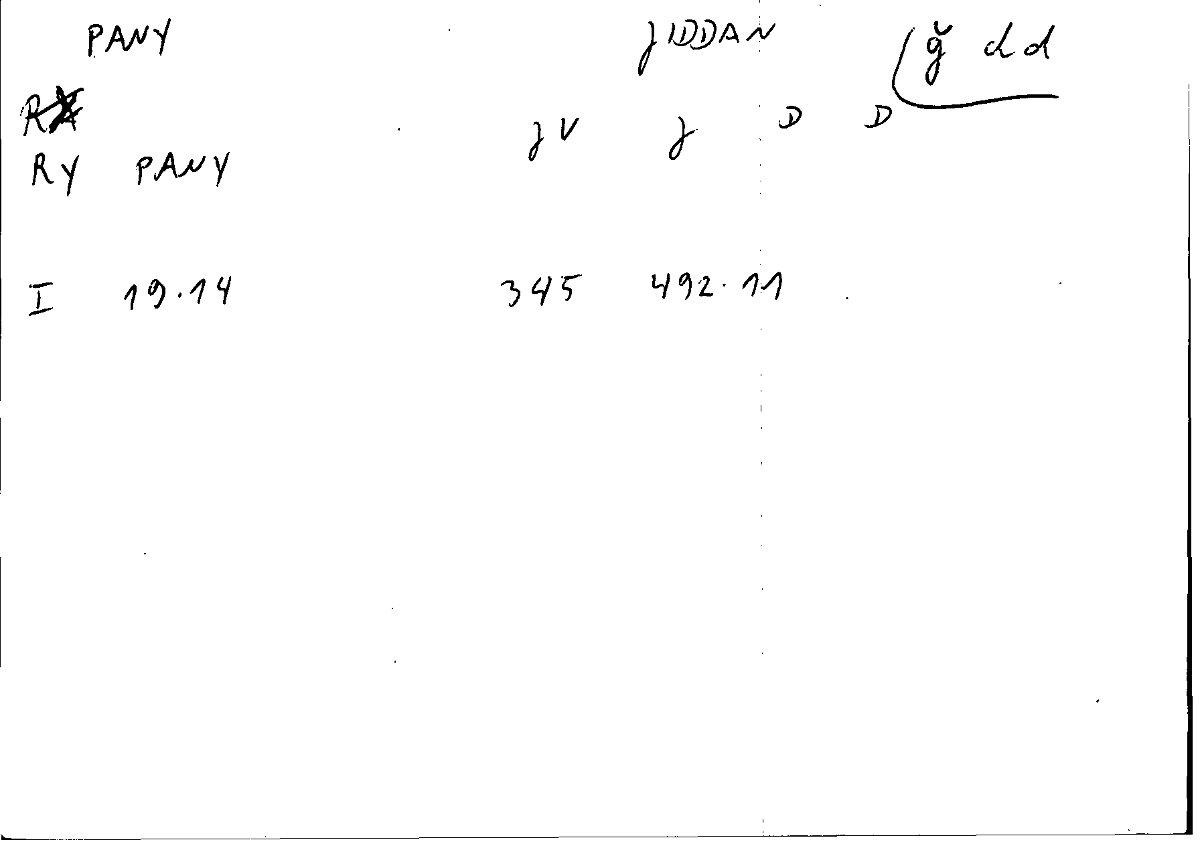 PANY JIDDAN ǧ dd
R
RY PANY JV J D D
I 19.14 345 492.11